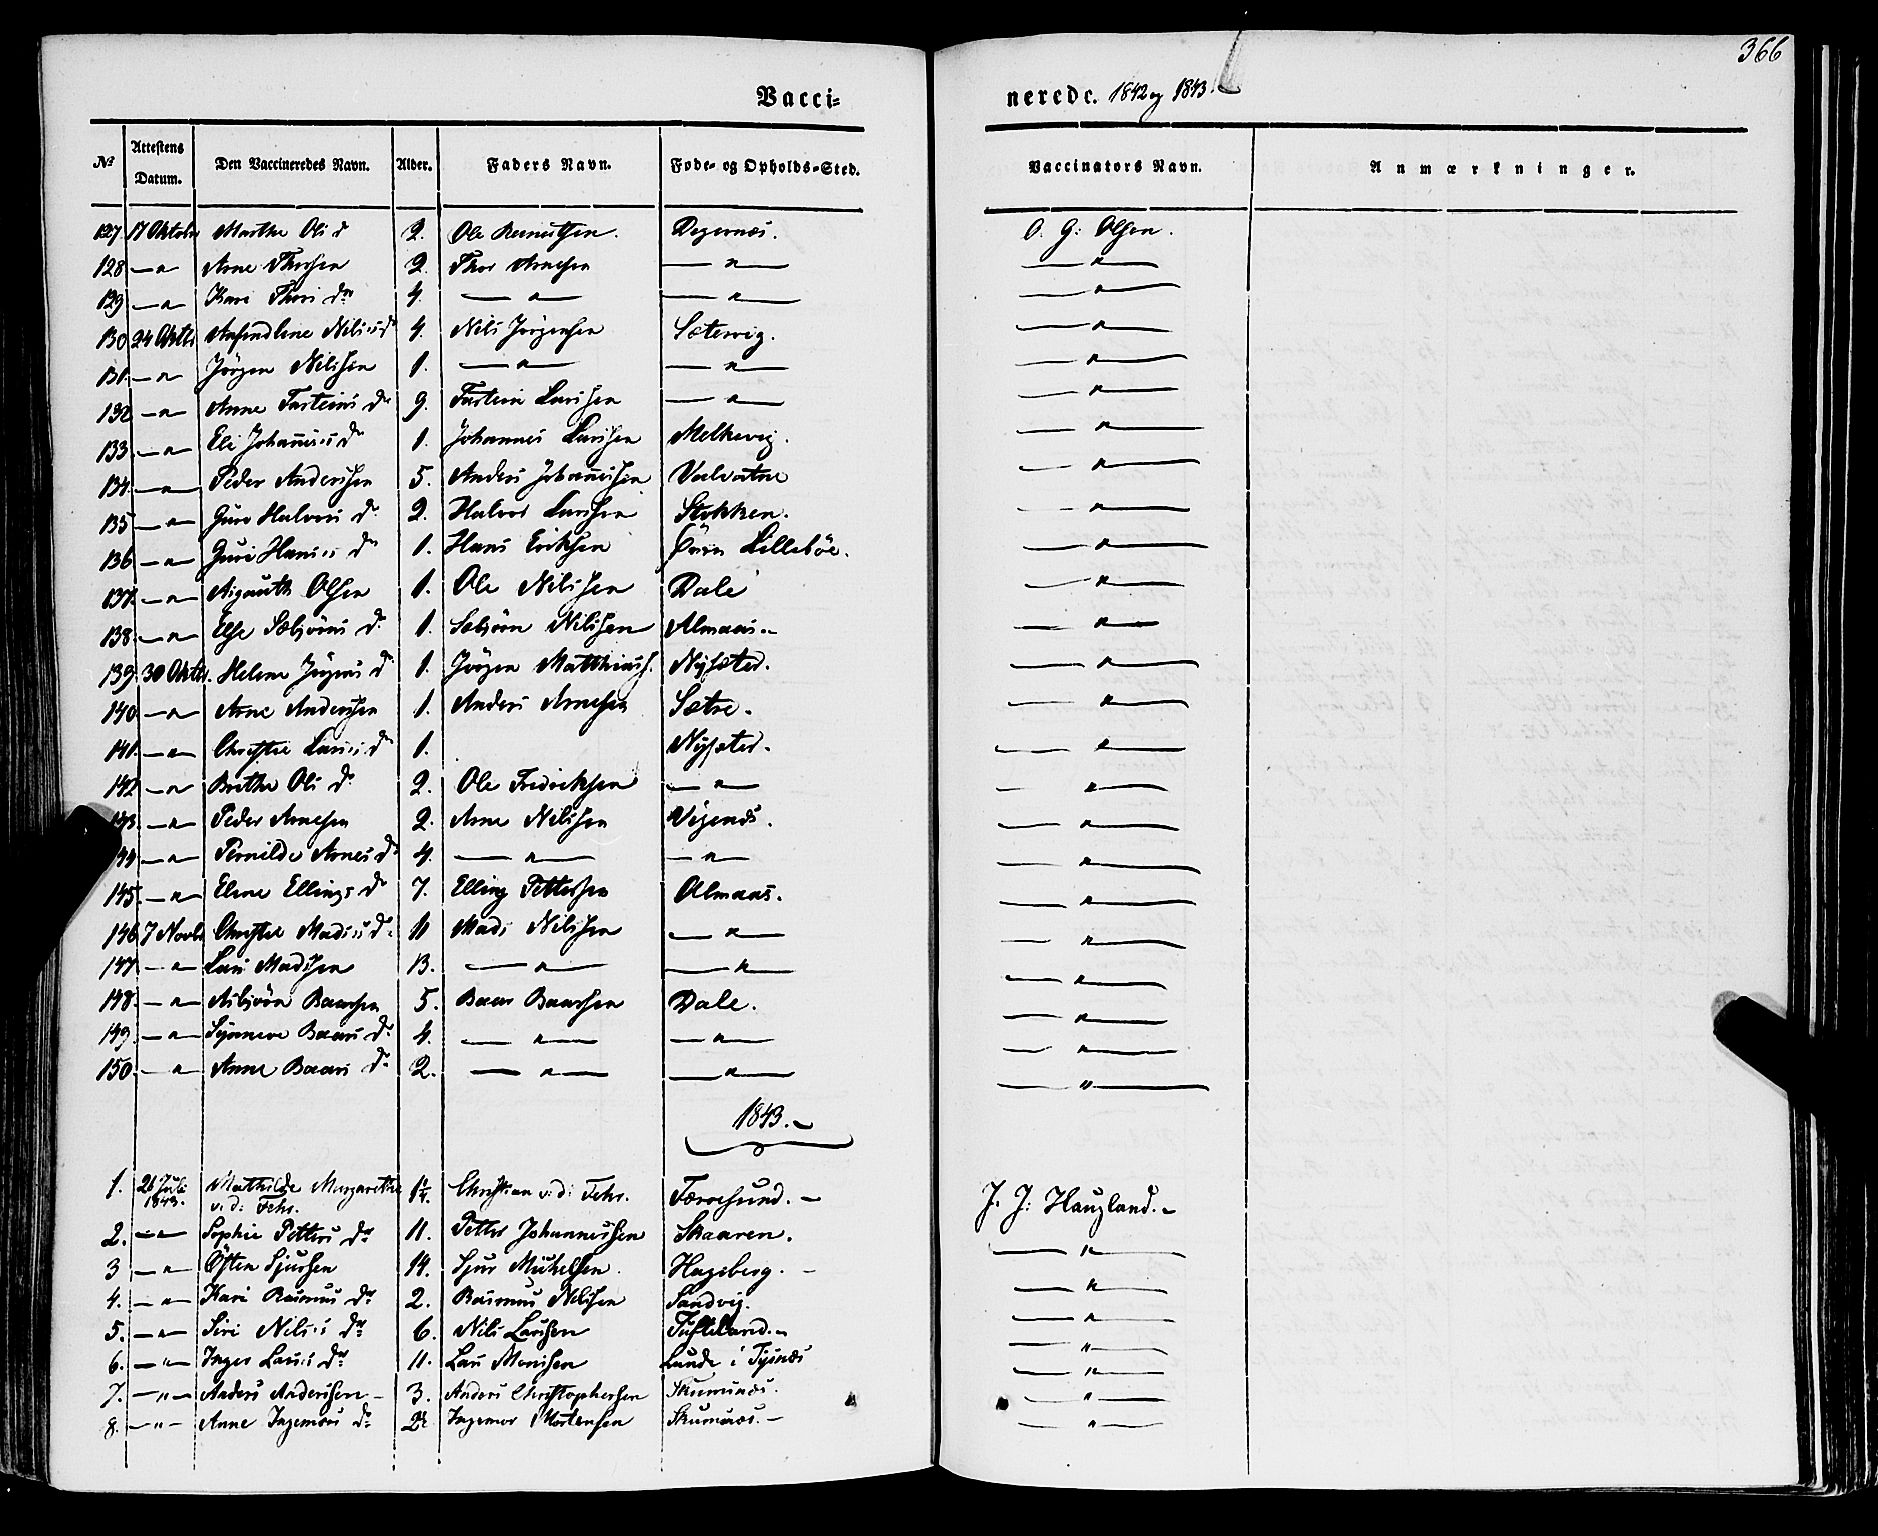 366
Vacci= nerede. 1842 og 1843.
No Attestens Datum. Den Vaccineredes Navn. Alder. Faders Navn. Føde- og Opholds-Sted. Vaccinators Navn. Anmærkninger.
127. 17 Oktobr Marthe Ols d 2. Ole Degernæs. O. G. Olsen.
128 — " — Arne Thorsen 2. Thor Arnesen — " — — " —
129 — " — Kari Thors dr 4. — " — — " — — " —
130 24 Oktbr Nils's d 4. Nils Jørgensen Sætervig. — " —
131. — " — Jørgen Nilssen 1. — " — — " — — " —
132 — " — Anne Tosteins dr 9. Tostein Larssen — " — — " —
133 — " — Eli Johannes's d 1. Johannes Larssen Melkevig. — " —
134. — " — Peder Anderssen 5. Anders Johannessen Valvatne — " —
135 — " — Guro Halvors d 2. Halvor Larssen Stokken. — " —
136 — " — Guri Hans's dr 1. Hans Eriksen Øvre Lillebøe. — " —
137. — " — Aigauth Olsen 1. Ole Nilssen Dale — " —
138. — " — Else Sæbjørns d. 1. Sæbjørn Nilssen Almaas. — " —
139. 30 Oktbr. Helene Jørgens d 1. Jørgen Matthiass. Nysæter. — " —
140 — " — Arne Anderssen 1. Anders Arnesen Sætre. — " —
141. — " — Christie Lars's dr 1. Nysæter. — " —
142 — " — Brithe Ols dr 2. Ole Fredriksen — " — — " —
143. — " — Peder Arnesen 2. Arne Nilssen Vigenæs. — " —
144 — " — Pernilde Arnes dr 4. — " — — " — — " —
145. — " — Elene Ellings dr 7. Elling Pettersen Almaas. — " —
146 7 Novbr Christie Mads's dr. 11 Mads Nilssen — " — — " —
147. — " — Lars Madssen 13. — " — — " — — " —
148. — " — Asbjørn Baarsen 5. Baar Baarsen Dale. — " —
149 — " — Synneve Baars dr 4. — " — — " — — " —
150. — " — Anne Baars dr 2. — " — — " — — " —
1843. —
1. 26 Juli 1843. Mathilde Margarethe v. d: Fehr. 1/4. Christian v. d: Fehr. Færøesund. — J. J: Haugland. —
2. — " — Sophie Petters dr 11. Petter Johannessen Skaaren. — " —
3 — " — Østen Sjursen 14. Sjur Michelsen. Hageberg. — — " —
4. — " — Kari Rasmus dr 2. Rasmus Nilssen Sandvig. — " —
5. — " — Siri Nils's dr 6. Nils Larssen Tufteland. — — " —
6. — " — Inger Lars's dr 11. Lars Monsen Lunde i Tysnæs — " —
7. — " — Anders Anderssen — 3. Anders Christophersen Skumsnæs. — " —
8. — " — Anne Ingemors dr 2 Ingemor Mortensen Skumsnæs. — — " —